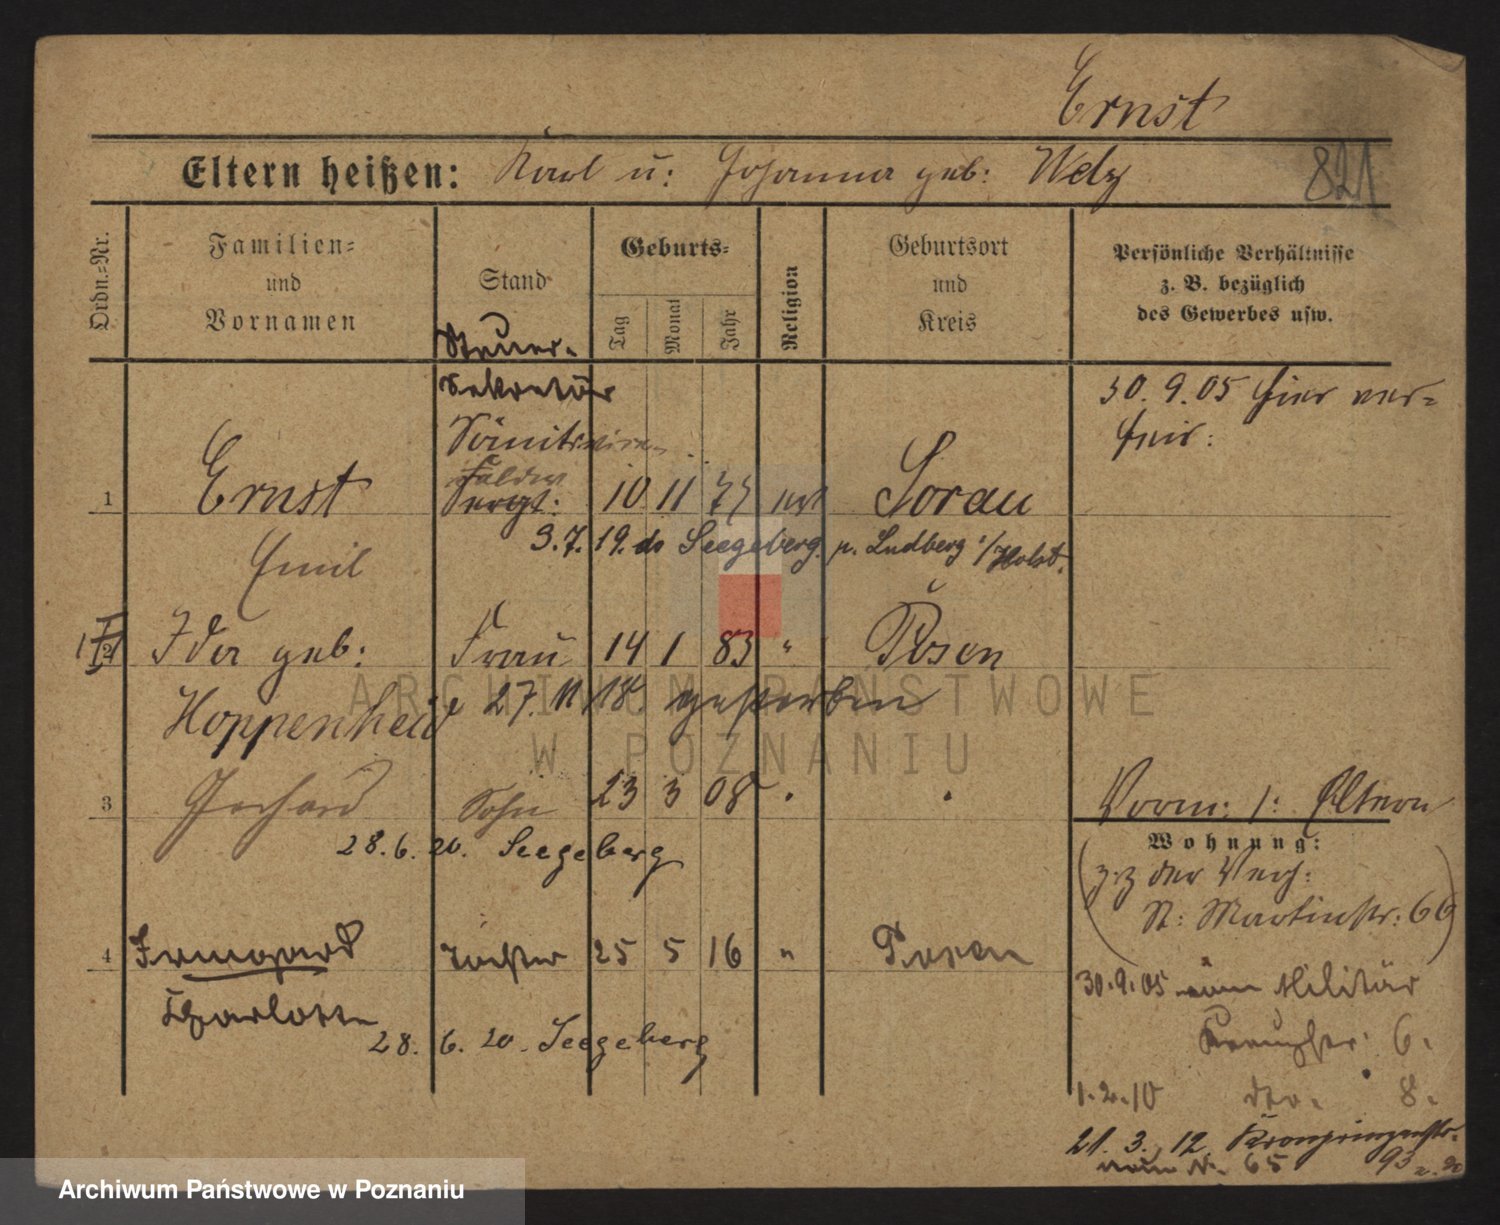 Ernst
Eltern heißen: Karl u: Johanna geb: Welz
821
Ordn.=Nr.
Familien=
und
Vornamen
Stand
Geburts=
Tag
Monat
Jahr
Religion
Geburtsort
und
Kreis
Persönliche Verhältnisse
z. B. bezüglich
des Gewerbes usw.
Steuer-
Sekretär
30. 9. 05 hier ver=
heir:
1 Ernst Sergt: 10 11 77 Sorau
Emil 3. 7. 19. Seegeberg i/Holst.
2 Ida geb: Frau 14 1 83 " Posen
Hoppenheid 27. 11. 18 gestorben
3 Gerhard Sohn 23 3 08 " "
28. 6. 20. Seegeberg
Vorm: 1: Eltern
Wohnung:
(z. Z der Verh:
St: Martinstr: 66)
4 Irmgard Tochter 25 5 16 " Posen
Charlotte
28. 6. 20. Seegeberg
30. 9. 05 Militär
6.
1. 2. 10 8.
21. 3. 12 Kronprinzenstr.
65 93
ARCHIWUM PAŃSTWOWE
W POZNANIU
Archiwum Państwowe w Poznaniu